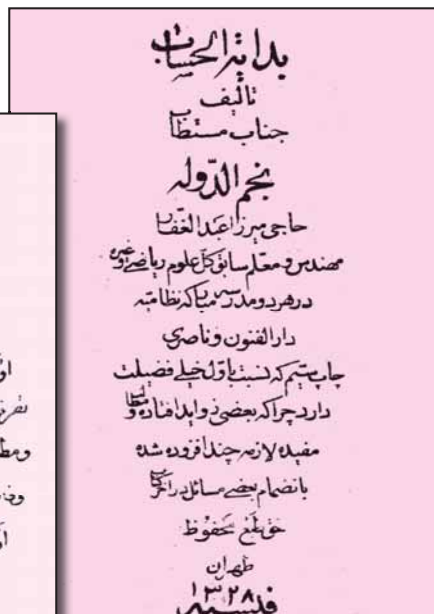 بدایة الحساب
تالیف
جناب مستطاب
نجم الدّوله
حاجی میرزا عبد الغفار
مهندس و معلم سابق کل علوم ریاضی وغیره
در هر دو مدرسه مبارکه نظامیه
دارالفنون و ناصری
چاپ سیم که نسبت باول خیلی فضیلت
دارد چراکه بعضی زواید افتاده و مطالب
مفیده لازمه چند افزوده شده
بانضمام بعضی مسائل در آخر کتاب
حق طبع محفوظ
طهران
۱۳۲۸